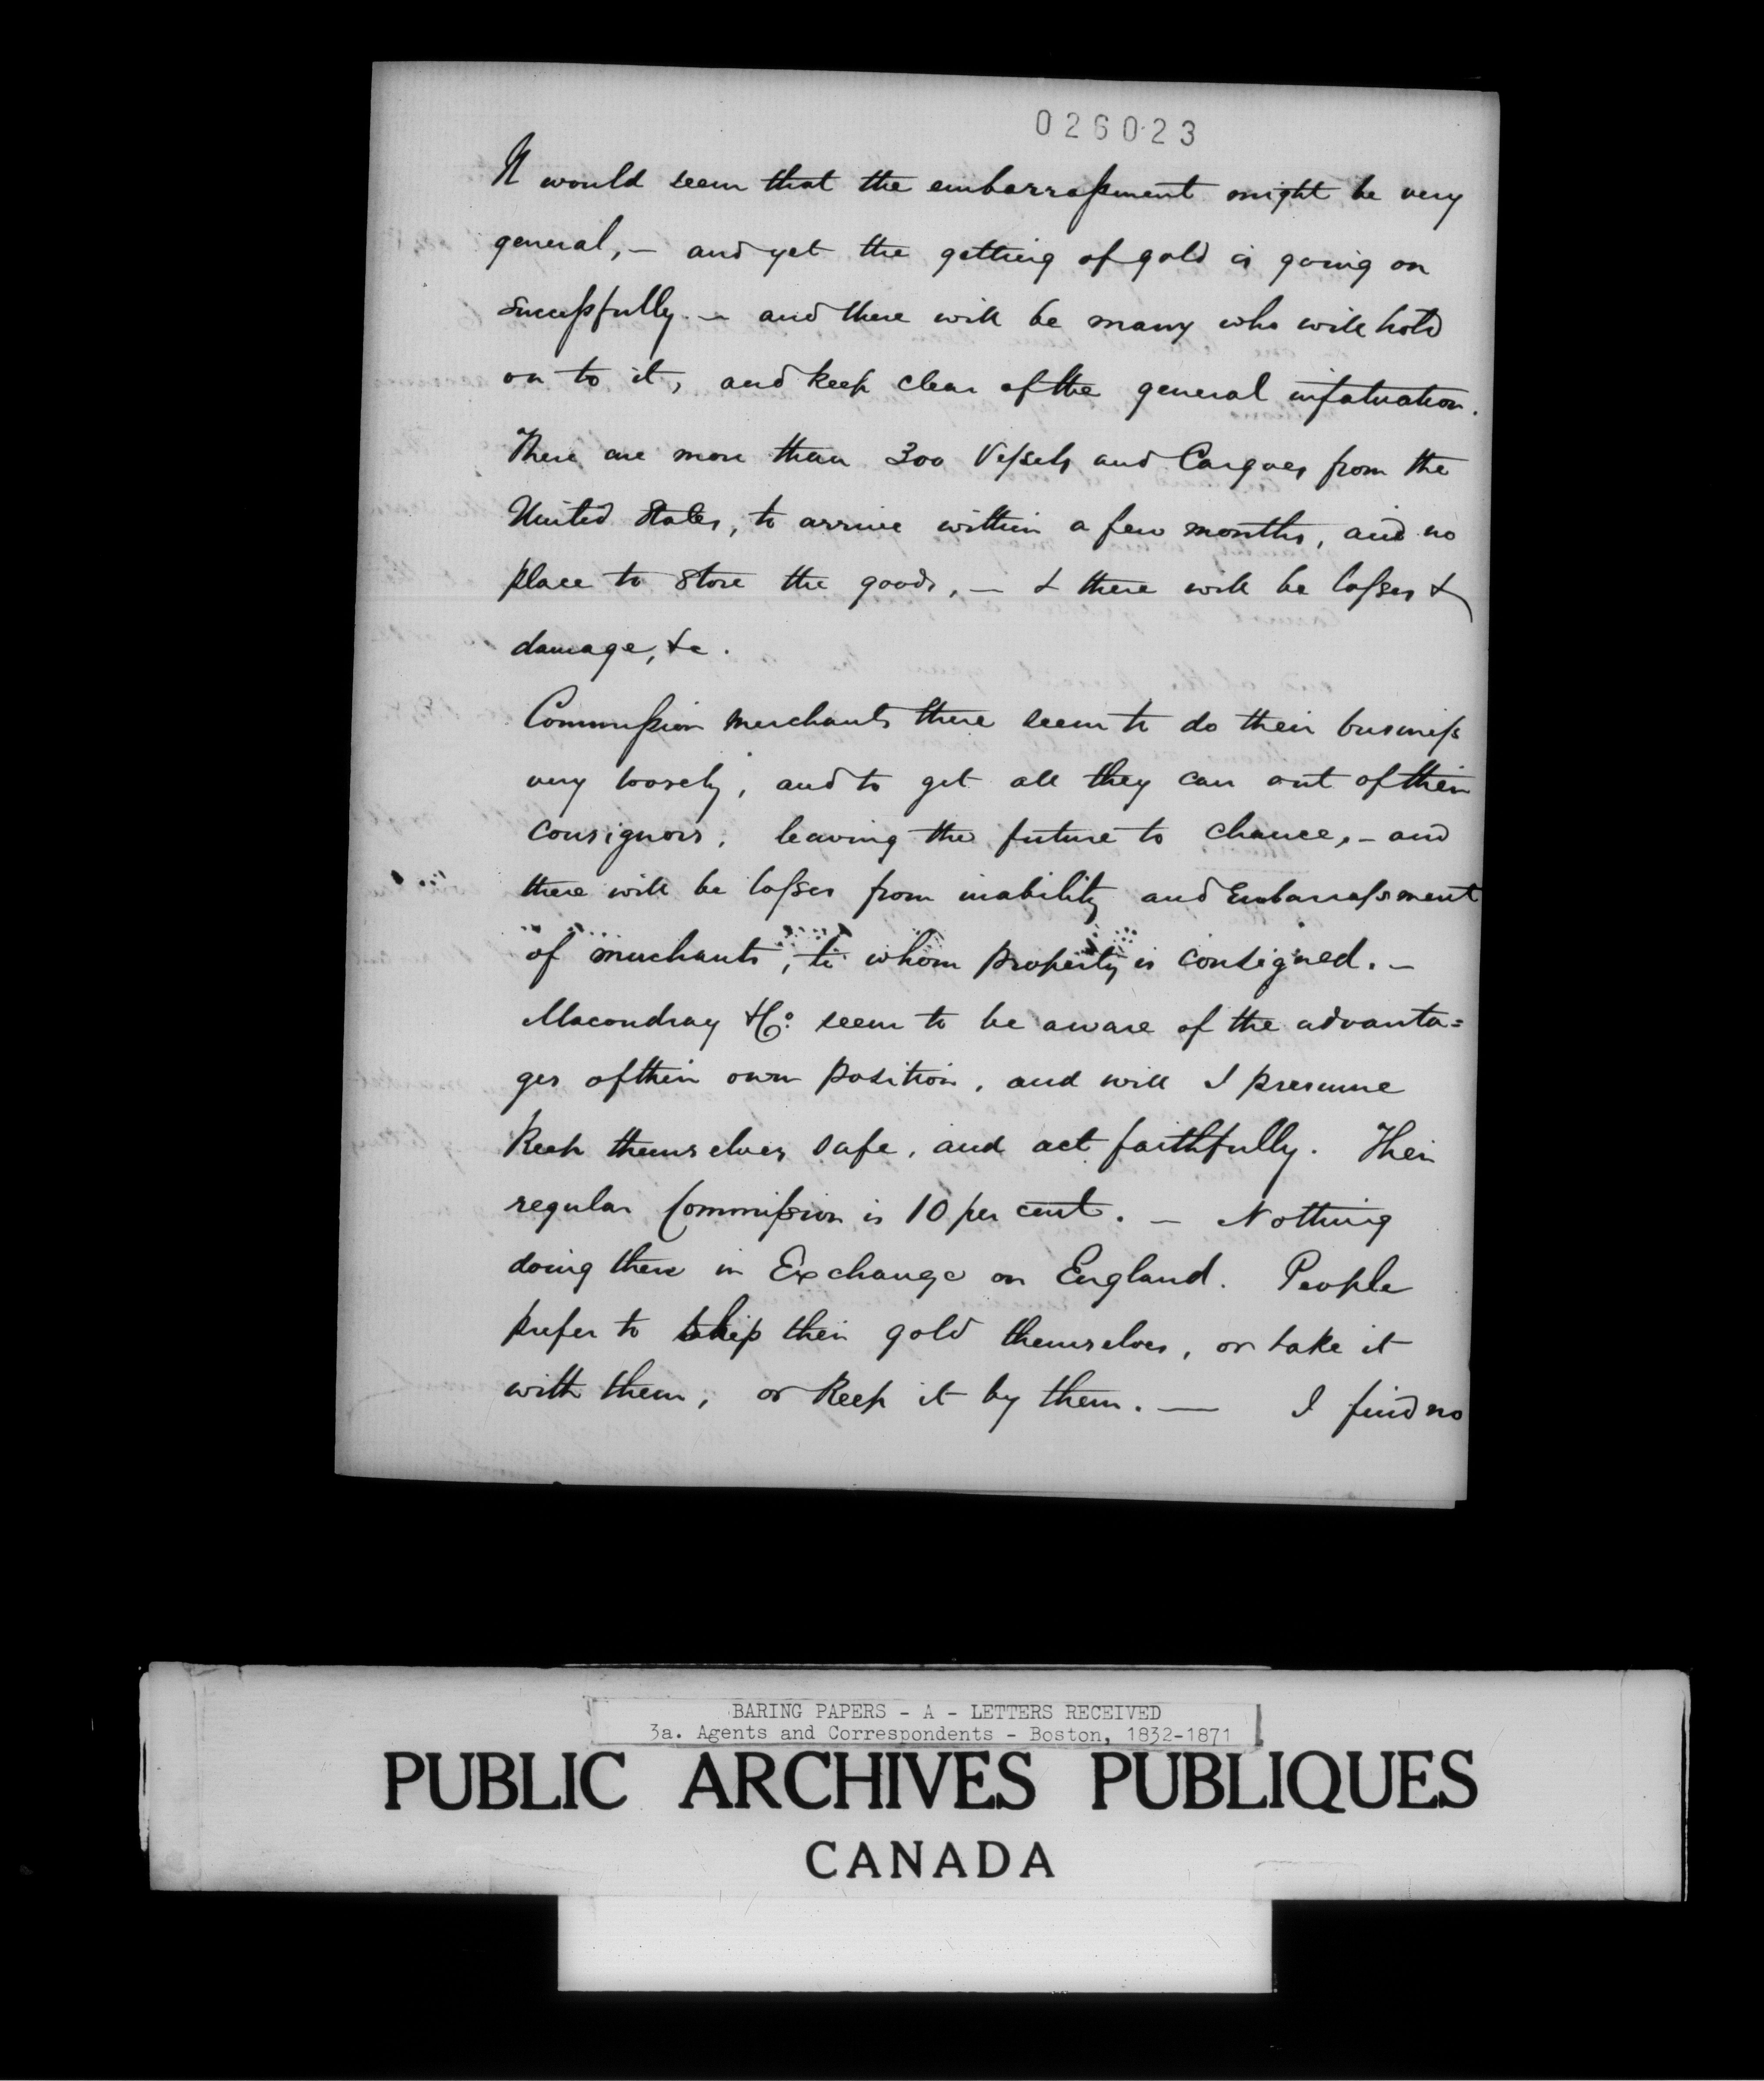 026023
It would seem that the embarrassment might be very
general, – and yet the getting of gold is going on
successfully. – and there will be many who will hold
on to it, and keep clear of the general infatuation.
There are more than 300 Vessels and Cargoes from the
United States, to arrive within a few months, and no
place to store the goods, – & there will be losses &
damage, &c.
Commission merchants there seem to do their business
very loosely, and to get all they can out of their
consignors, leaving the future to chance, – and
there will be losses from inability and Embarrassment
of merchants, to whom property is consigned. –
Macondray & Co. seem to be aware of the advanta=
ges of their own position, and will I presume
keep themselves safe, and act faithfully. Their
regular Commission is 10 per cent. – Nothing
doing there in Exchange on England. People
prefer to ship their gold themselves, or take it
with them, or keep it by them. — I find no
BARING PAPERS - A - LETTERS RECEIVED
3a. Agents and Correspondents - Boston, 1832-1871
PUBLIC ARCHIVES PUBLIQUES
CANADA